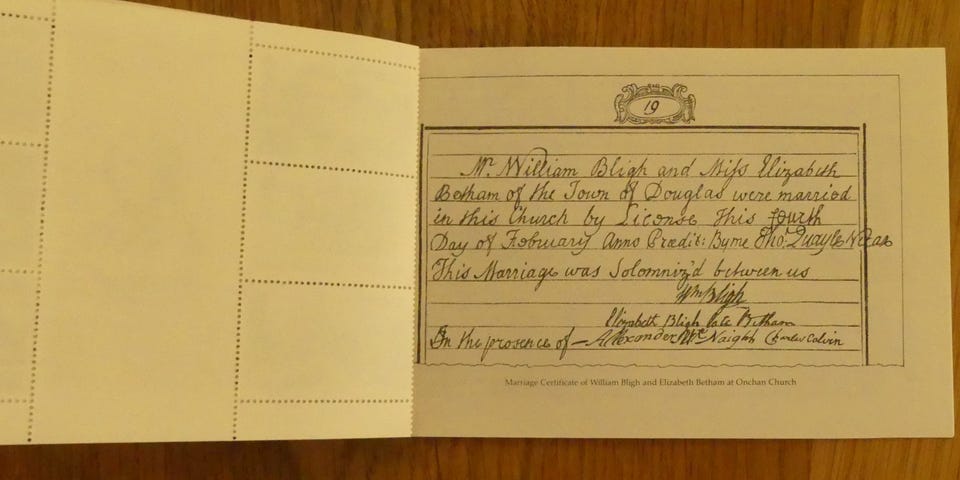 19
Mr. William Bligh and Miſs Elizabeth
Betham of the Town of Douglas were married
in this Church by License this fourth
Day of February Anno Prædit: By me Tho: Quayle Vicar
This Marriage was Solemniz'd between us
Wm Bligh
Elizabeth Bligh late Betham
In the presence of - Alexander Mc Naight Charles Colvin
Marriage Certificate of William Bligh and Elizabeth Betham at Onchan Church